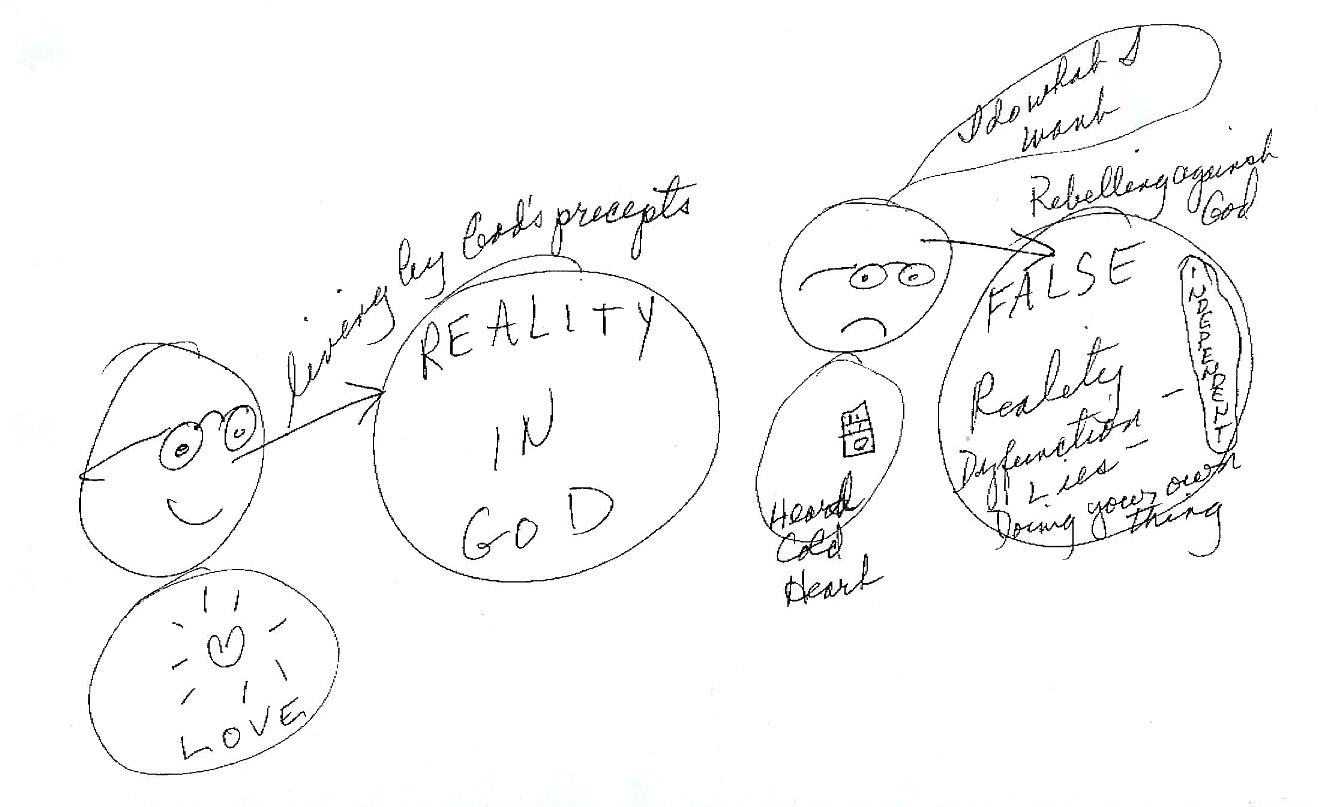 living by God's precepts
REALITY
IN
GOD
LOVE
I do what I
want
Rebelling against
God
FALSE
Reality
Dyfunction -
Lies -
Doing your own
thing
INDEPENDENT
Heard
Cold
Heart